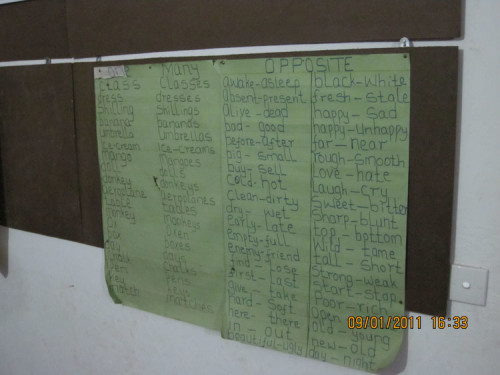 Many
Class Classes
dress dresses
Shilling Shillings
banana bananas
umbrella umbrellas
ice-cream ice-creams
mango mangoes
doll dolls
donkey donkeys
aeroplanes
table tables
monkey monkeys
oxen
boxes
pen pens
key keys
matches
OPPOSITE
awake-asleep
absent-present
alive-dead
bad-good
before-after
big-small
buy-sell
cold-hot
clean-dirty
dry-wet
early-late
empty-full
enemy-friend
find-lose
first-last
give-take
hard-soft
here-there
in-out
beautiful-ugly
black-white
fresh-stale
happy-sad
happy-unhappy
far-near
rough-smooth
love-hate
laugh-cry
sweet-bitter
sharp-blunt
top-bottom
wild-tame
tall-short
strong-weak
start-stop
poor-rich
open
old-young
new-old
day-night
09/01/2011 16:33